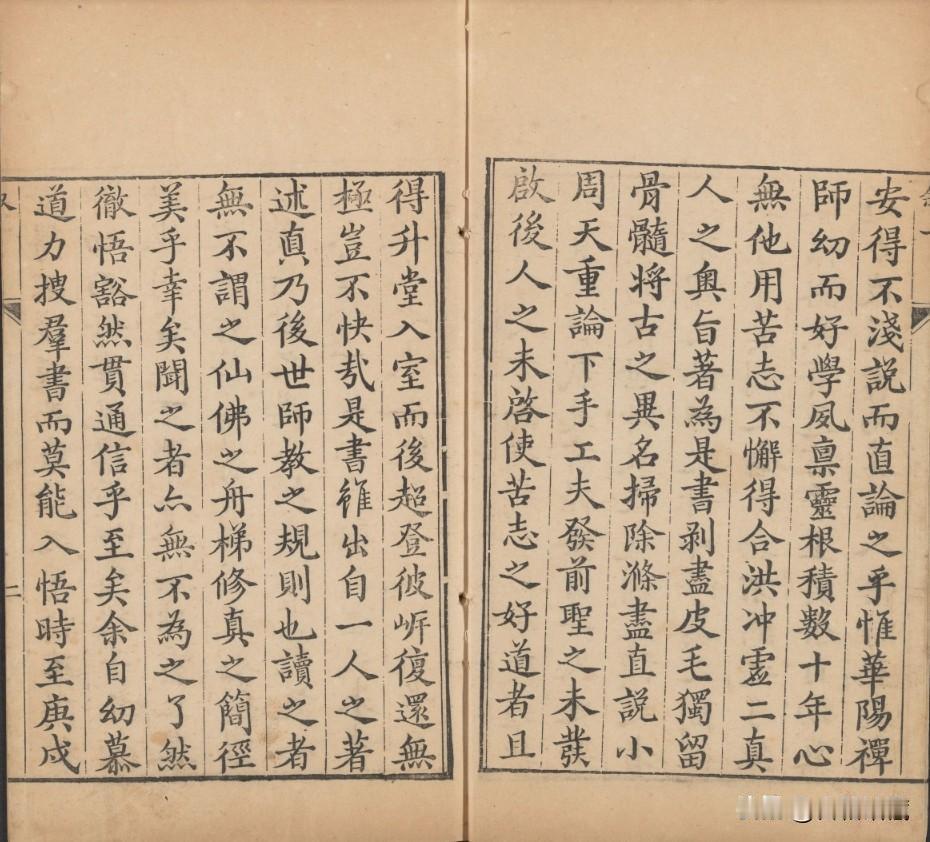 安得不淺説而直論之乎惟華陽禪
師幼而好學夙稟靈根積數十年心
無他用苦志不懈得合洪冲虛二真
人之奥旨著為是書剥盡皮毛獨留
骨髓將古之異名掃除滌盡直説小
周天重論下手工夫發前聖之未發
啟後人之未啓使苦志之好道者且
得升堂入室而後超登彼岍復還無
極豈不快㢤是書雖出自一人之著
述真乃後世師教之規則也讀之者
無不謂之仙佛之舟梯修真之簡徑
美乎幸矣聞之者亦無不為之了然
徹悟豁然貫通信乎至矣余自幼慕
道力搜羣書而莫能入悟時至庚戍
二